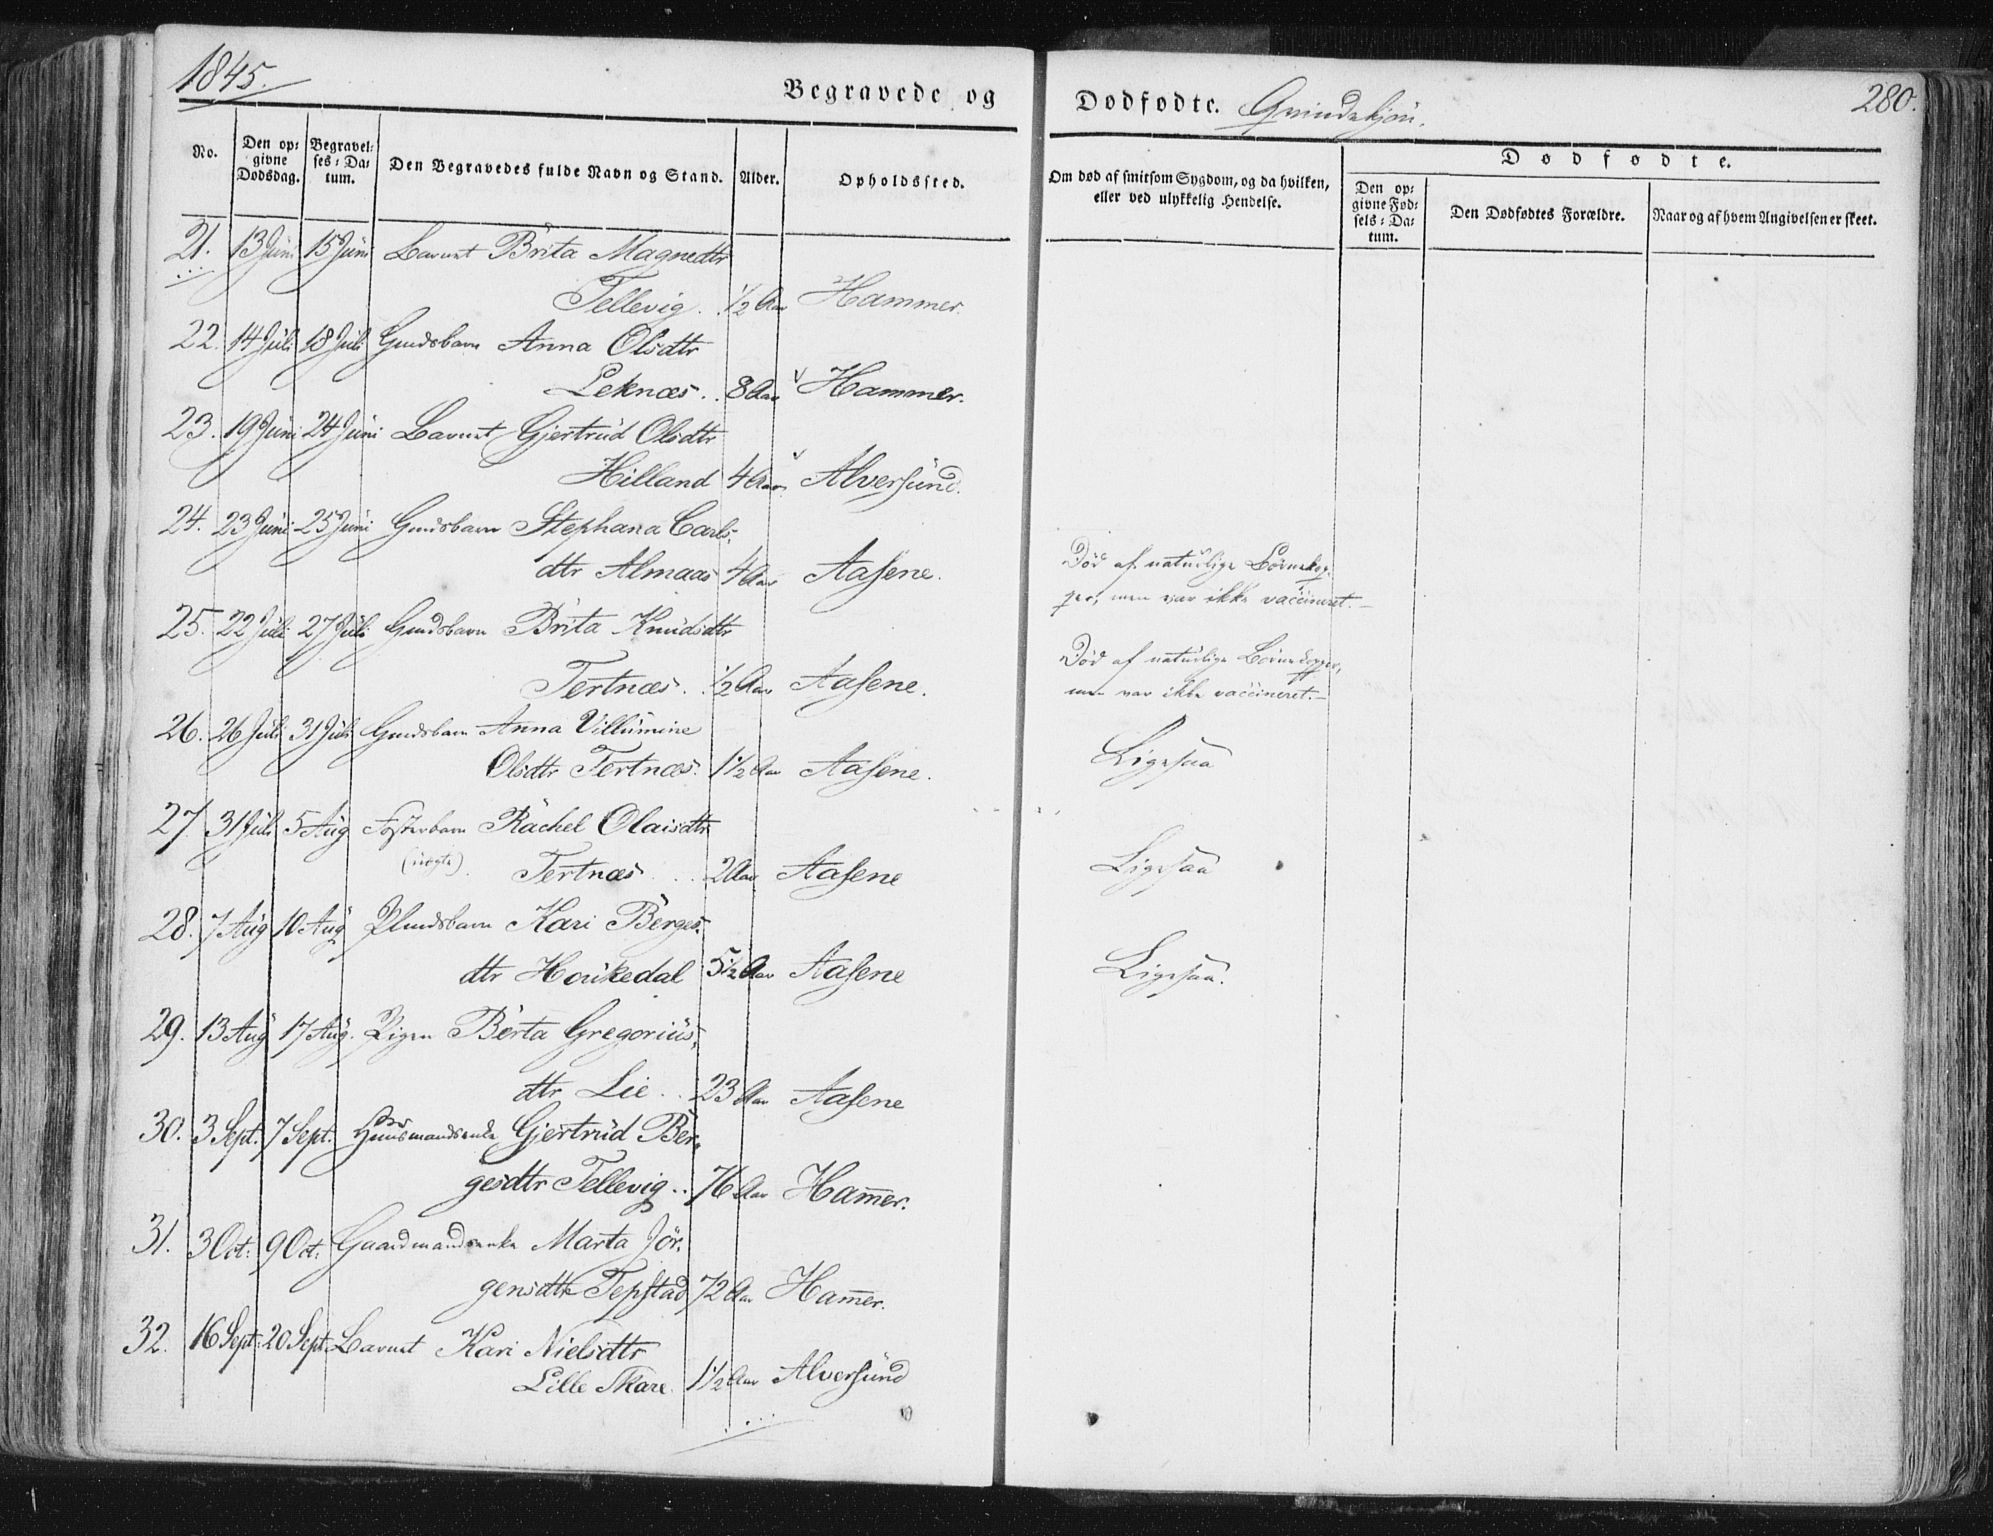 1845.
Begravede og
Dødfødte. Qvindekjön.
280.
No.
Den opgivne Dødsdag.
Begravelses-Datum.
Den Begravedes fulde Navn og Stand.
Alder.
Opholdssted.
Om død af smitsom Sygdom, og da hvilken, eller ved ulykkelig Hendelse.
Dødfødte.
Den opgivne Fødsels-Datum.
Den Dødfødtes Forældre.
Naar og af hvem Angivelsen er skeet.
21. 13 Juni 15 Juni Barnet Brita Magnedtr
Tellevig. 1/2 Aar Hammer.
22. 14 Juli 18 Juli Gmdsbarn Anna Olsdtr
Leknæs.. 8 Aar Hammer.
23. 19 Juni 24 Juni Barnet Gjertrud Olsdtr
Hilland 4 Aar Alversund.
24. 23 Juni 25 Juni Gmdsbarn Stephana Carls-
dtr Almaas 4 Aar Aasene. Död af naturlige Börnekop-
per, men var ikke vaccineret.
25. 22 Juli 27 Juli Gmdsbarn Brita Knudsdtr
Död af naturlige Börnekopper,
Tertnæs. 1/2 Aar Aasene. men var ikke vaccineret.
26. 26 Juli 31 Juli Gmdsbarn Anna Villumine
Olsdtr Tertnæs. 1 1/2 Aar Aasene. Ligesaa
27. 31 Juli 5 Aug Fosterbarn Rachel Olaisdtr
(uægte). Tertnæs.. 2 Aar Aasene Ligesaa
28. 7 Aug 10 Aug Plmdsbarn Kari Berges-
dtr Houkedal 5 1/2 Aar Aasene Ligesaa.
29. 13 Aug 17 Aug. Pigen Berta Gregorius-
dtr Lie.. 23 Aar Aasene
30. 3 Sept. 7 Sept. Huusmandsenke Gjertrud Ber-
gesdtr Tellevig.. 76 Aar Hamer.
31. 3 Oct: 9 Oct: Gaardmandsenke Marta Jör-
gensdtr Tepstad 72 Aar Hamer.
32. 16 Sept: 20 Sept. Barnet Kari Nielsdtr
Lille Skare. 1 1/2 Aar Alversund